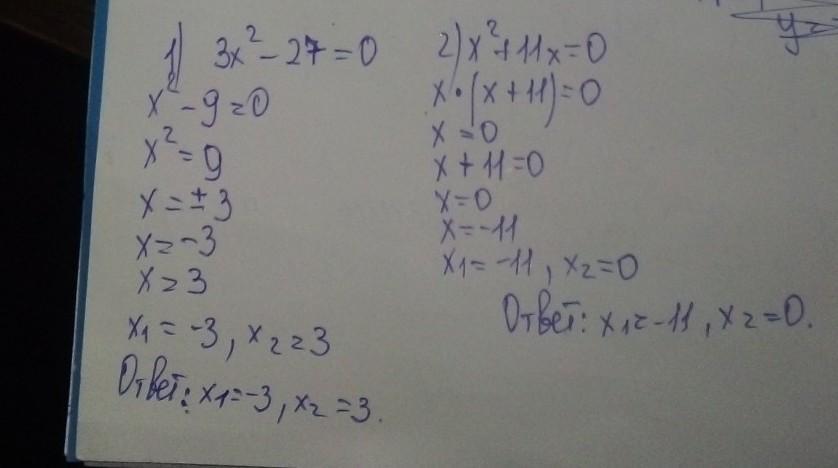 1) 3x² - 27 = 0
x² - 9 = 0
x² = 9
x = ± 3
x = -3
x = 3
x₁ = -3, x₂ = 3
Ответ: x₁ = -3, x₂ = 3.
2) x² + 11x = 0
x · (x + 11) = 0
x = 0
x + 11 = 0
x = 0
x = -11
x₁ = -11, x₂ = 0
Ответ: x₁ = -11, x₂ = 0.